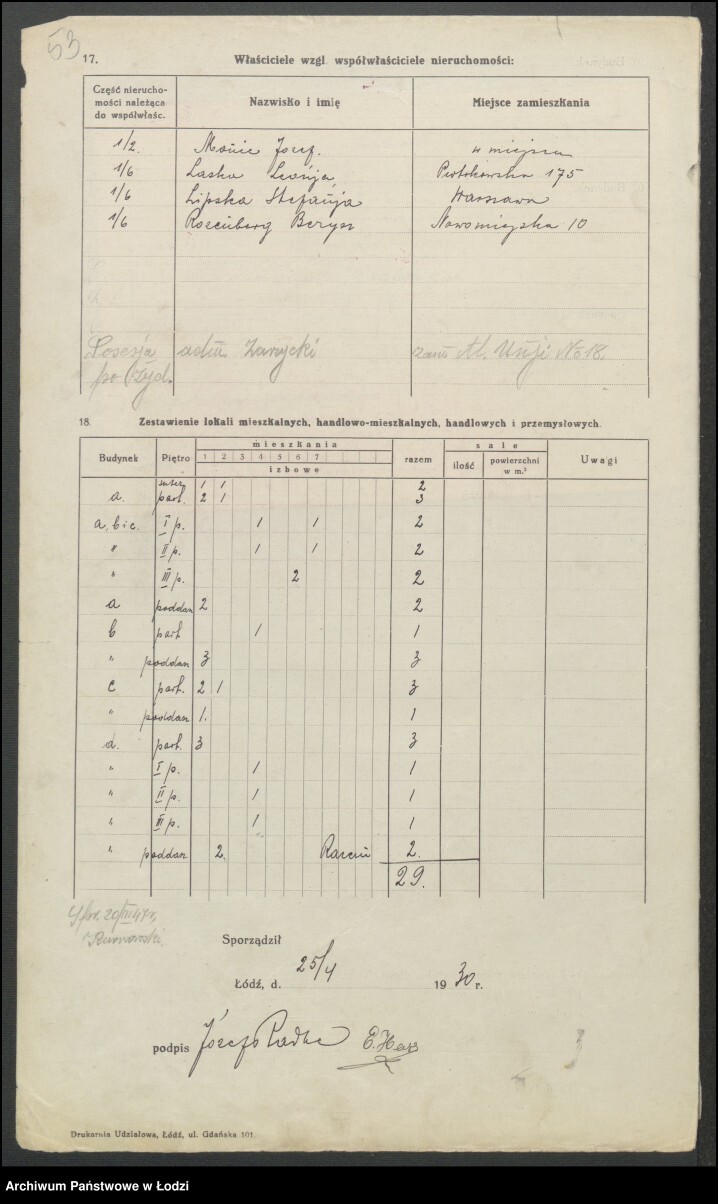 53
17. Właściciele wzgl. współwłaściciele nieruchomości:
Część nierucho-
mości należąca
do współwłaśc.
Nazwisko i imię
Miejsce zamieszkania
1/2. Józef. w miejscu
1/6 Laska Piotrkowska 175
1/6 Lipska Stefanja Warszawa
1/6 Rozenberg Nowomiejska 10
Posesja adm Zarzycki zam Al. Unji No 18.
po żyd.
18. Zestawienie lokali mieszkalnych, handlowo-mieszkalnych, handlowych i przemysłowych.
Budynek Piętro mieszkania razem sale Uwagi
1 2 3 4 5 6 7
izbowe
ilość powierzchni
w m.²
suter 1 1 2
a. part. 2 1 3
a, b i c. I p. 1 1 2
" II p. 1 1 2
" III p. 2 2
a poddasz 2 2
b part 1 1
" poddasz 3 3
c part. 2 1 3
" poddasz 1. 1
d. part. 3 3
" I p. 1 1
" II p. 1 1
" III p. 1 1
" poddasz 2. Razem 2.
29.
Sporządził
Łódź, d. 25/4 1930 r.
podpis Józef Radke E. Hays
Drukarnia Udziałowa, Łódź, ul. Gdańska 101.
Archiwum Państwowe w Łodzi